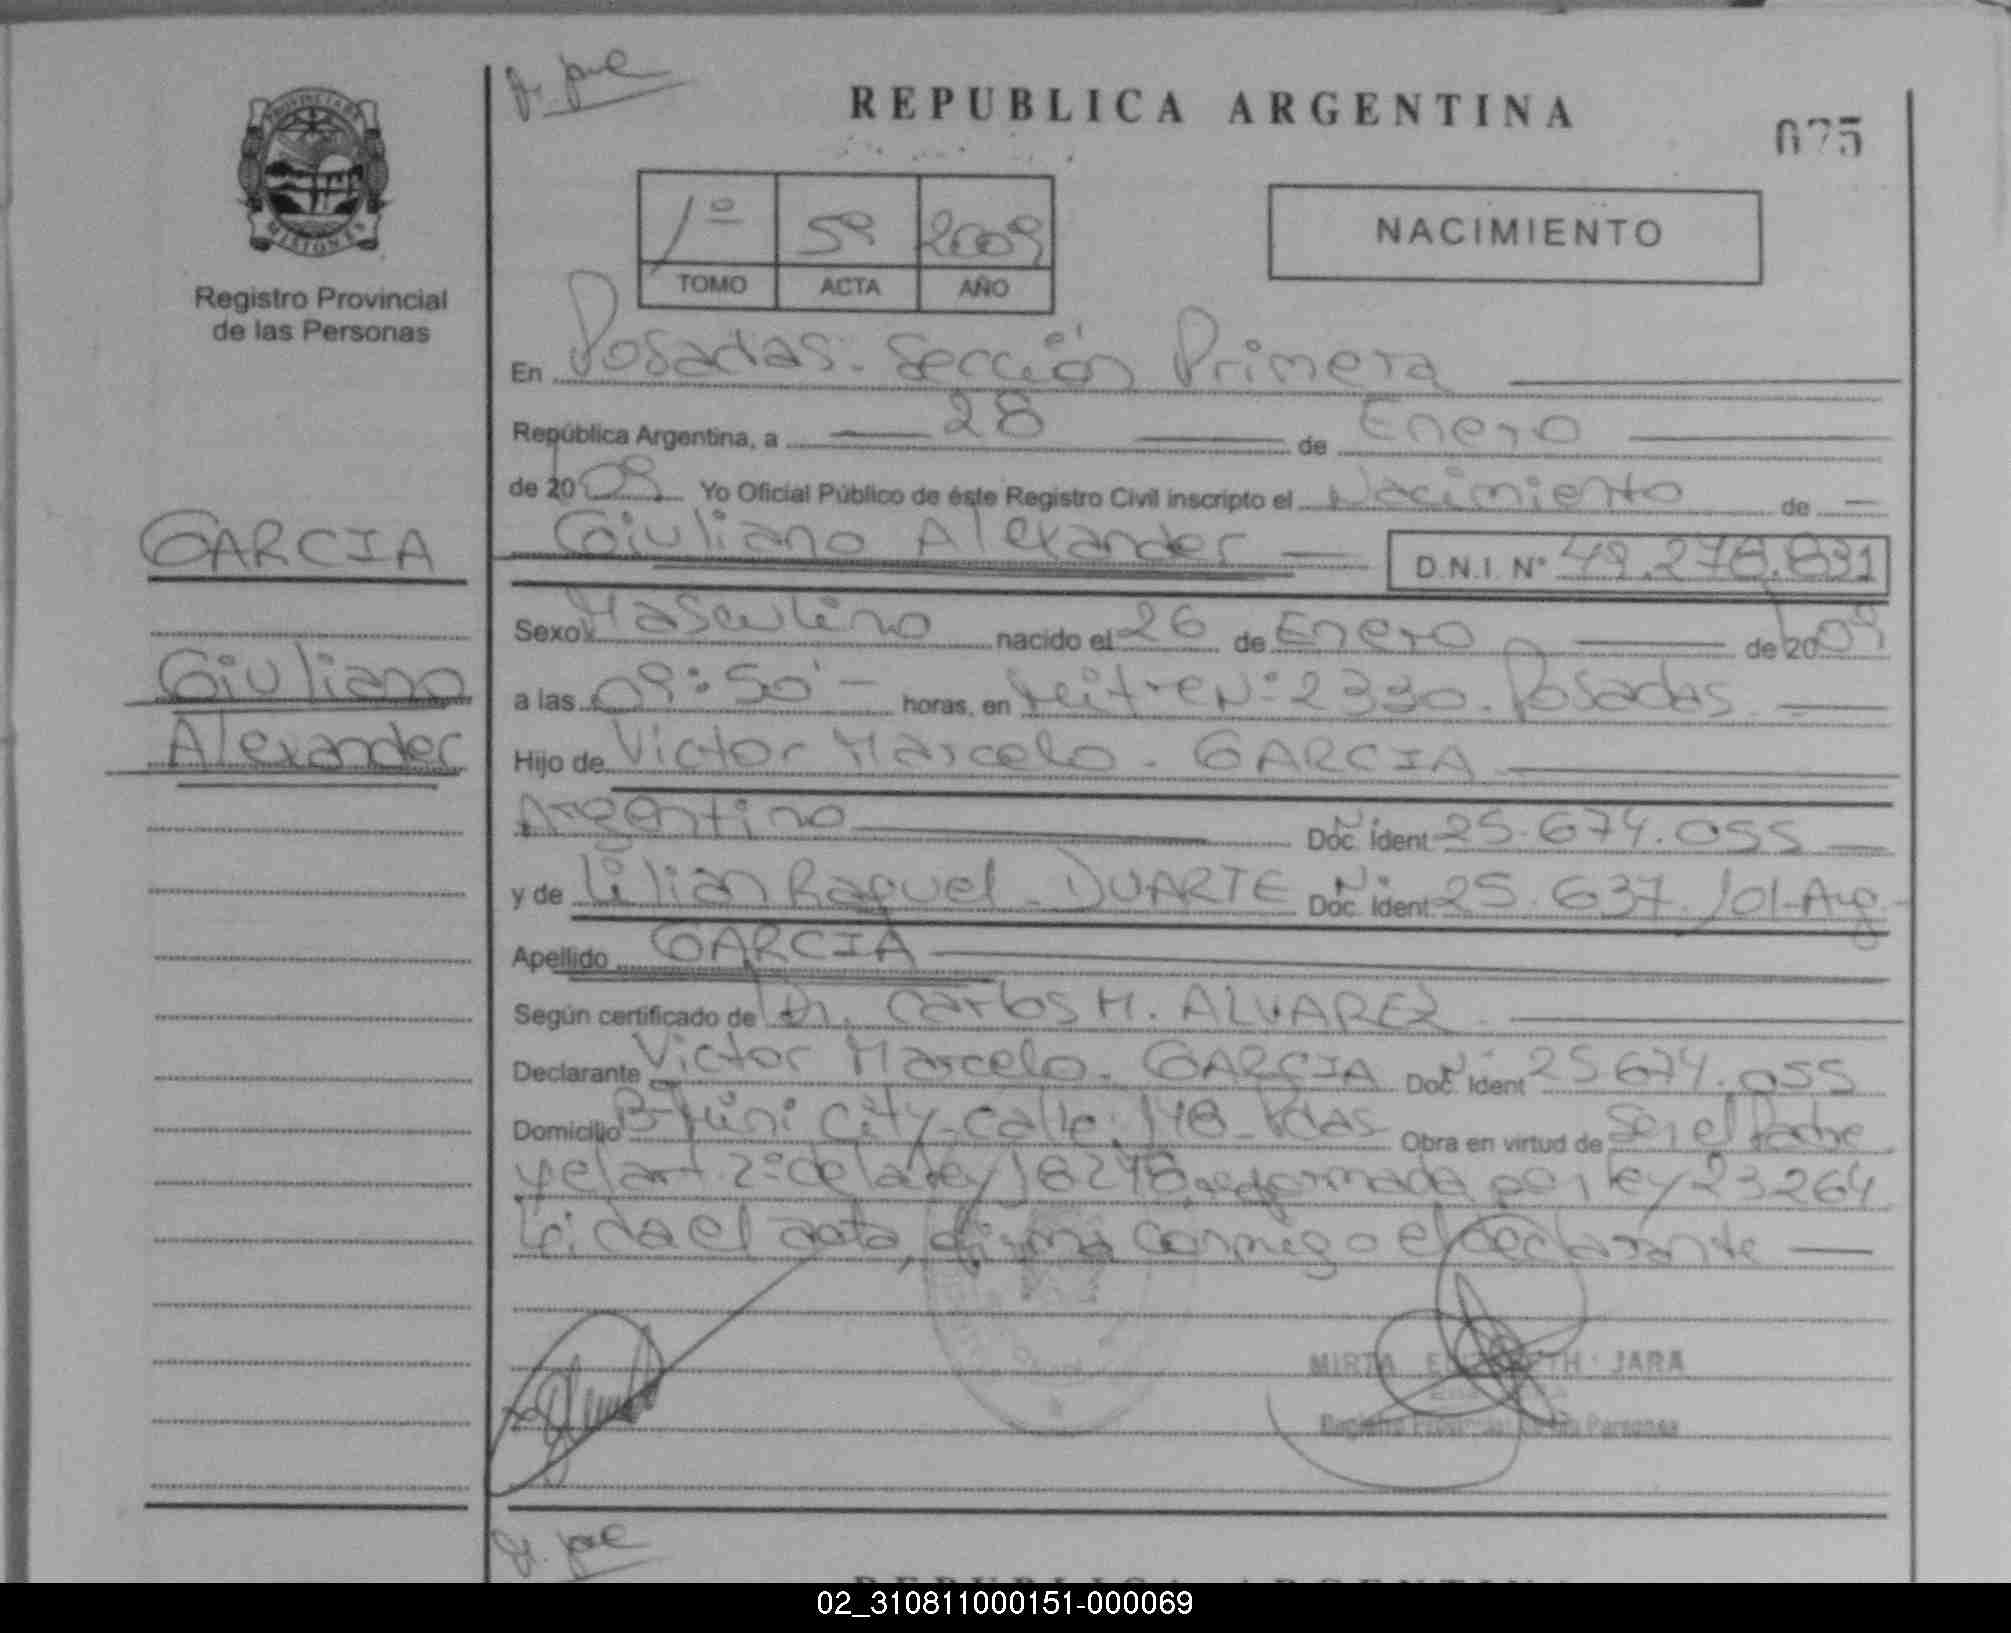 Dr. José
REPUBLICA ARGENTINA
075
PROVINCIA DE
MISIONES
Registro Provincial
de las Personas
1º 59 2009
TOMO ACTA AÑO
NACIMIENTO
En Posadas. Sección Primera
República Argentina, a 28 de Enero
de 2009 Yo Oficial Público de éste Registro Civil inscripto el Nacimiento de
Giuliano Alexander D.N.I. Nº 49.278.831
GARCIA
Giuliano
Alexander
Sexo Masculino nacido el 26 de Enero de 2009
a las 09:50 horas, en Mitre Nº 2330. Posadas
Hijo de Victor Marcelo. GARCIA
Argentino Doc. Ident. 25.674.055
y de Lilian Raquel. DUARTE Doc. Ident. 25.637.101-Arg-
Apellido GARCIA
Según certificado de Dr. Carlos H. ALVAREZ
Declarante Victor Marcelo. GARCIA Doc. Ident 25674.055
Domicilio City-calle: 148-Pdas Obra en virtud de Ser el Padre
y el art. 2º de la ley 18248, reformada por ley 23264
Leida el acta, firma conmigo el declarante
MIRTA ELIZABETH JARA
Registro Provincial de las Personas
02_310811000151-000069